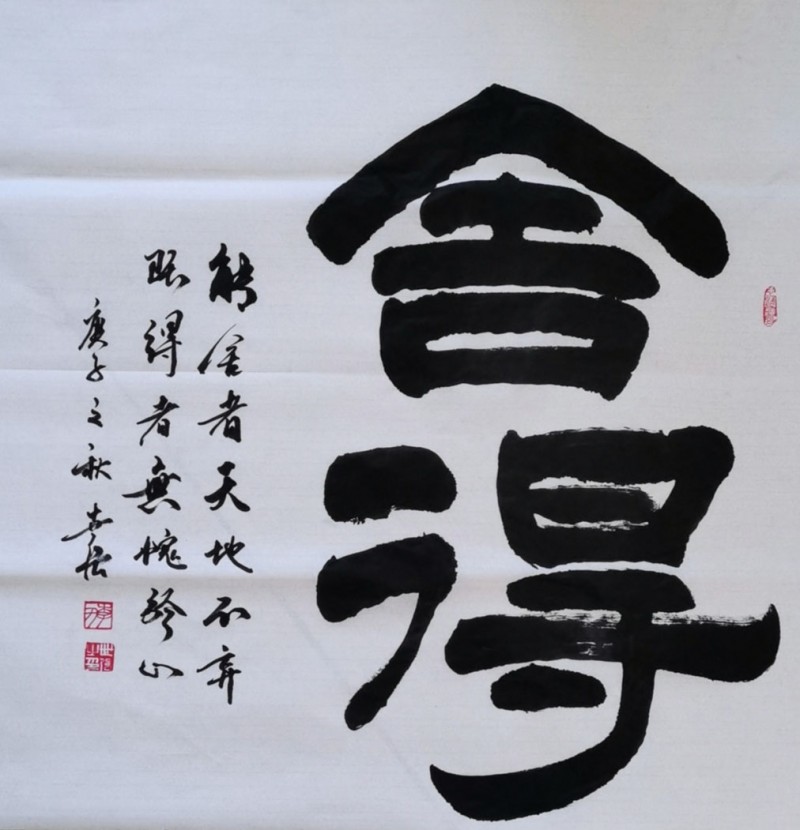 舍
得
能舍者天地不弃
既得者無愧於心
庚子之秋